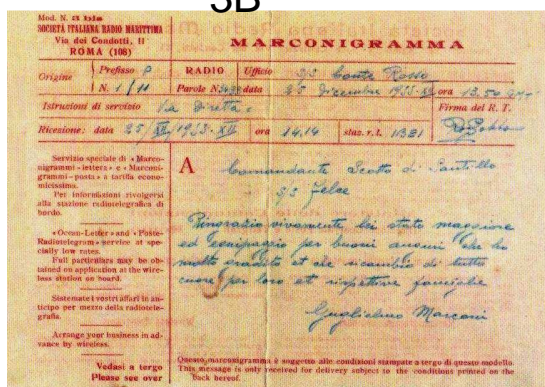 3B
Mod. N. 3 bis
SOCIETÀ ITALIANA RADIO MARITTIMA
Via dei Condotti, 11
ROMA (108)
MARCONIGRAMMA
Origine
Prefisso P
N. 1/11
RADIO
Parole N.
Ufficio s/s Conte Rosso
data 25 Dicembre 1933 XII ora 13.50
Istruzioni di servizio Via Diretta.
Firma del R. T.
Ricezione: data 25/XII/1933-XII ora 14.14 staz. r. t.
Servizio speciale di « Marco-
nigrammi-lettera » e « Marconi-
grammi-posta » a tariffa econo-
micissima.
Per informazioni rivolgersi
alla stazione radiotelegrafica di
bordo.
« Ocean-Letter » and « Poste-
Radiotelegram » service at spe-
cially low rates.
Full particulars may be ob-
tained on application at the wire-
less station on board.
Sistemate i vostri affari in an-
ticipo per mezzo della radiotele-
grafia.
Arrange your business in ad-
vance by wireless.
Vedasi a tergo
Please see over
A Comandante Scotto di Santillo
s/s Felce
Ringrazio vivamente lei stato maggiore
ed equipaggio per buoni auguri che ho
molto gradito et che ricambio di tutto
cuore per loro et rispettive famiglie
Guglielmo Marconi
Questo marconigramma è soggetto alle condizioni stampate a tergo di questo modello.
This message is only received for delivery subject to the conditions printed on the
back hereof.